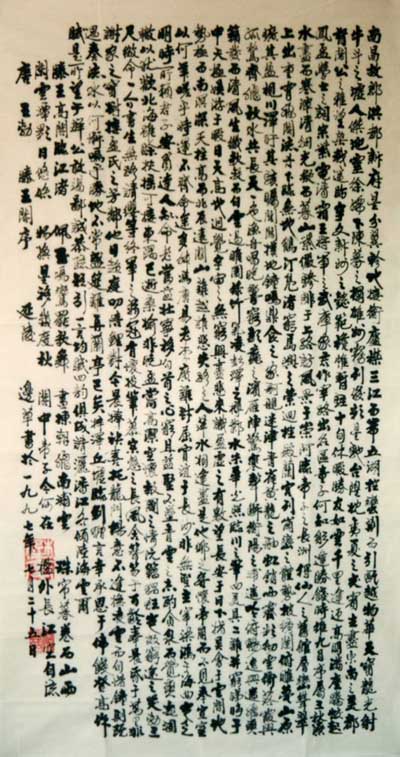 南昌故郡洪都新府星分翼軫地接衡廬襟三江而帶五湖控蠻荊而引甌越物華天寶龍光射
牛斗之墟人傑地靈徐孺下陳蕃之榻雄州霧列俊彩星馳臺隍枕夷夏之交賓主盡東南之美都
督閻公之雅望棨戟遙臨宇文新州之懿範襜帷暫駐十旬休暇勝友如雲千里逢迎高朋滿座騰蛟起
鳳孟學士之詞宗紫電清霜王將軍之武庫家君作宰路出名區童子何知躬逢勝餞時維九月序屬三秋潦
水盡而寒潭清煙光凝而暮山紫儼驂騑于上路訪風景于崇阿臨帝子之長洲得仙人之舊館層巒聳翠
上出重霄飛閣流丹下臨無地鶴汀鳧渚窮島嶼之縈迴桂殿蘭宮列岡巒之體勢披繡闥俯雕甍山原
曠其盈視川澤紆其駭矚閭閻撲地鐘鳴鼎食之家舸艦迷津青雀黃龍之舳虹銷雨霽彩徹雲衢落霞與
孤鶩齊飛秋水共長天一色漁舟唱晚響窮彭蠡之濱雁陣驚寒聲斷衡陽之浦遙吟俯暢逸興遄飛爽
籟發而清風生纖歌凝而白雲遏睢園綠竹氣凌彭澤之樽鄴水朱華光照臨川之筆四美具二難并窮睇眄于
中天極娛遊于暇日天高地迥覺宇宙之無窮興盡悲來識盈虛之有數望長安于日下指吳會于雲間地
勢極而南溟深天柱高而北辰遠關山難越誰悲失路之人萍水相逢盡是他鄉之客懷帝閽而不見奉宣室
以何年嗟乎時運不齊命途多舛馮唐易老李廣難封屈賈誼于長沙非無聖主竄梁鴻于海曲豈乏
明時所賴君子安貧達人知命老當益壯寧移白首之心窮且益堅不墜青雲之志酌貪泉而覺爽處涸
轍以猶歡北海雖賒扶搖可接東隅已逝桑榆非晚孟嘗高潔空懷報國之情阮籍猖狂豈效窮途之哭勃三
尺微命一介書生無路請纓等終軍之弱冠有懷投筆慕宗愨之長風舍簪笏于百齡奉晨昏于萬里非
謝家之寶樹接孟氏之芳鄰他日趨庭叨陪鯉對今晨捧袂喜托龍門楊意不逢撫凌雲而自惜鍾期既
遇奏流水以何慚嗚呼勝地不常盛筵難再蘭亭已矣梓澤丘墟臨別贈言幸承恩于偉餞登高作
賦是所望于群公敢竭鄙誠恭疏短引一言均賦四韻俱成請灑潘江各傾陸海雲爾
滕王高閣臨江渚 佩玉鳴鸞罷歌舞 畫棟朝飛南浦雲 珠簾暮卷西山雨
閒雲潭影日悠悠 物換星移幾度秋 閣中帝子今何在 檻外長江空自流
唐 王勃 滕王閣序 延陵 邊華書於一九九七年七月二十五日